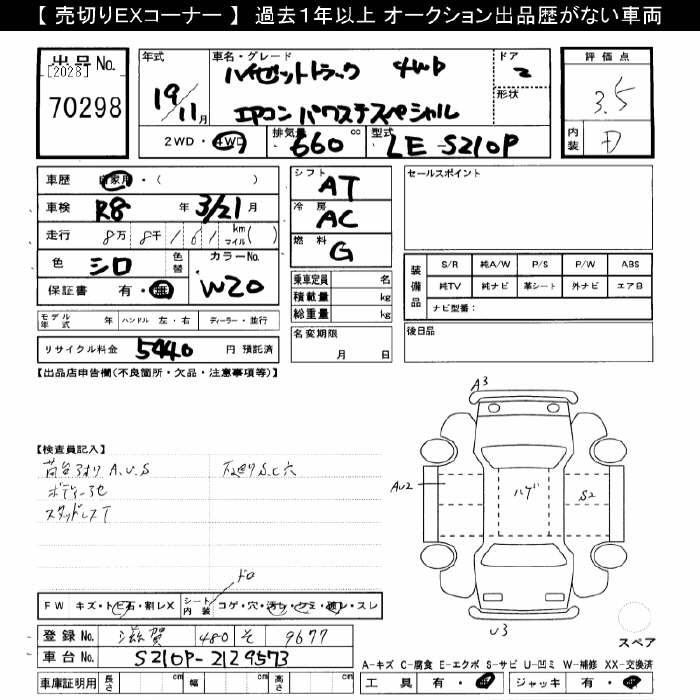 【 売切りEXコーナー 】 過去1年以上 オークション出品歴がない車両
出品No.
[2028]
70298
年式
19/11月
車名・グレード
ハイゼットトラック 4WD
エアコン パワステスペシャル
ドア
2
形状
評価点
3.5
内装
D
2WD・4WD
排気量
660 cc
型式
LE-S210P
車歴 自家用・( )
車検 R8 年 3/21 月
走行 8万 8千161 km マイル( )
色 シロ 色替
カラーNo.
W20
保証書 有・無
モデル年式 年 ハンドル 左・右 ディーラー・並行
リサイクル料金 5440 円 預託済
シフト AT
冷房 AC
燃料 G
乗車定員 名
積載量 kg
総重量 kg
名変期限
月 日
セールスポイント
装備品
S/R 純A/W P/S P/W ABS
純TV 純ナビ 革シート 外ナビ エアB
ナビ型番:
後日品
【出品店申告欄(不良箇所・欠品・注意事項等)】
【検査員記入】
荷台 A.U.S 下廻りS.C穴
スタッドレスT
A3
AU2
ハゲ
S2
U3
ドロ
FW キズ・トビ石・割レX
シート内装 コゲ・穴・汚レ・スレ
登録No. 滋賀 480 そ 9677
車台No. S210P-2129573
車庫証明用 長さ cm 幅 cm 高さ cm
スペア
A-キズ C-腐食 E-エクボ S-サビ U-凹ミ W-補修 XX-交換済
工具 有・ ジャッキ 有・